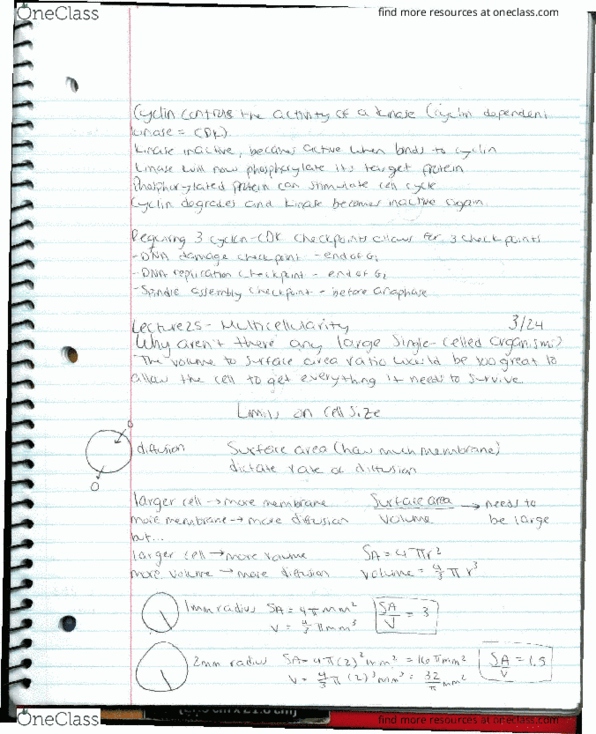 OneClass
find more resources at oneclass.com
Cyclin controls the activity of a kinase (cyclin dependent
kinase = CDK)
Kinase inactive, becomes active when binds to cyclin
Kinase will now phosphorylate its target protein
Phosphorylated protein can stimulate cell cycle
Cyclin degrades and kinase becomes inactive again
Requiring 3 cyclin-CDK checkpoints allows for 3 checkpoints
-DNA damage checkpoint - end of G1
-DNA replication checkpoint - end of G2
-Spindle assembly checkpoint - before anaphase
Lecture 25 - Multicellularity 3/24
Why aren't there any large single-celled organisms?
-The volume to surface area ratio would be too great to
allow the cell to get everything it needs to survive
Limits on Cell Size
diffusion Surface area (how much membrane)
dictate rate of diffusion
larger cell → more membrane Surface area → needs to
more membrane → more diffusion Volume be large
but...
larger cell → more volume SA = 4πr²
more volume → more diffusion Volume = 4/3 πr³
1mm radius SA = 4π mm² SA/V = 3
V = 4/3 π mm³
2mm radius SA = 4π(2)² mm² = 16π mm² SA/V = 1.5
V = 4/3 π (2)³ mm³ = 32/π mm²
OneClass
find more resources at oneclass.com